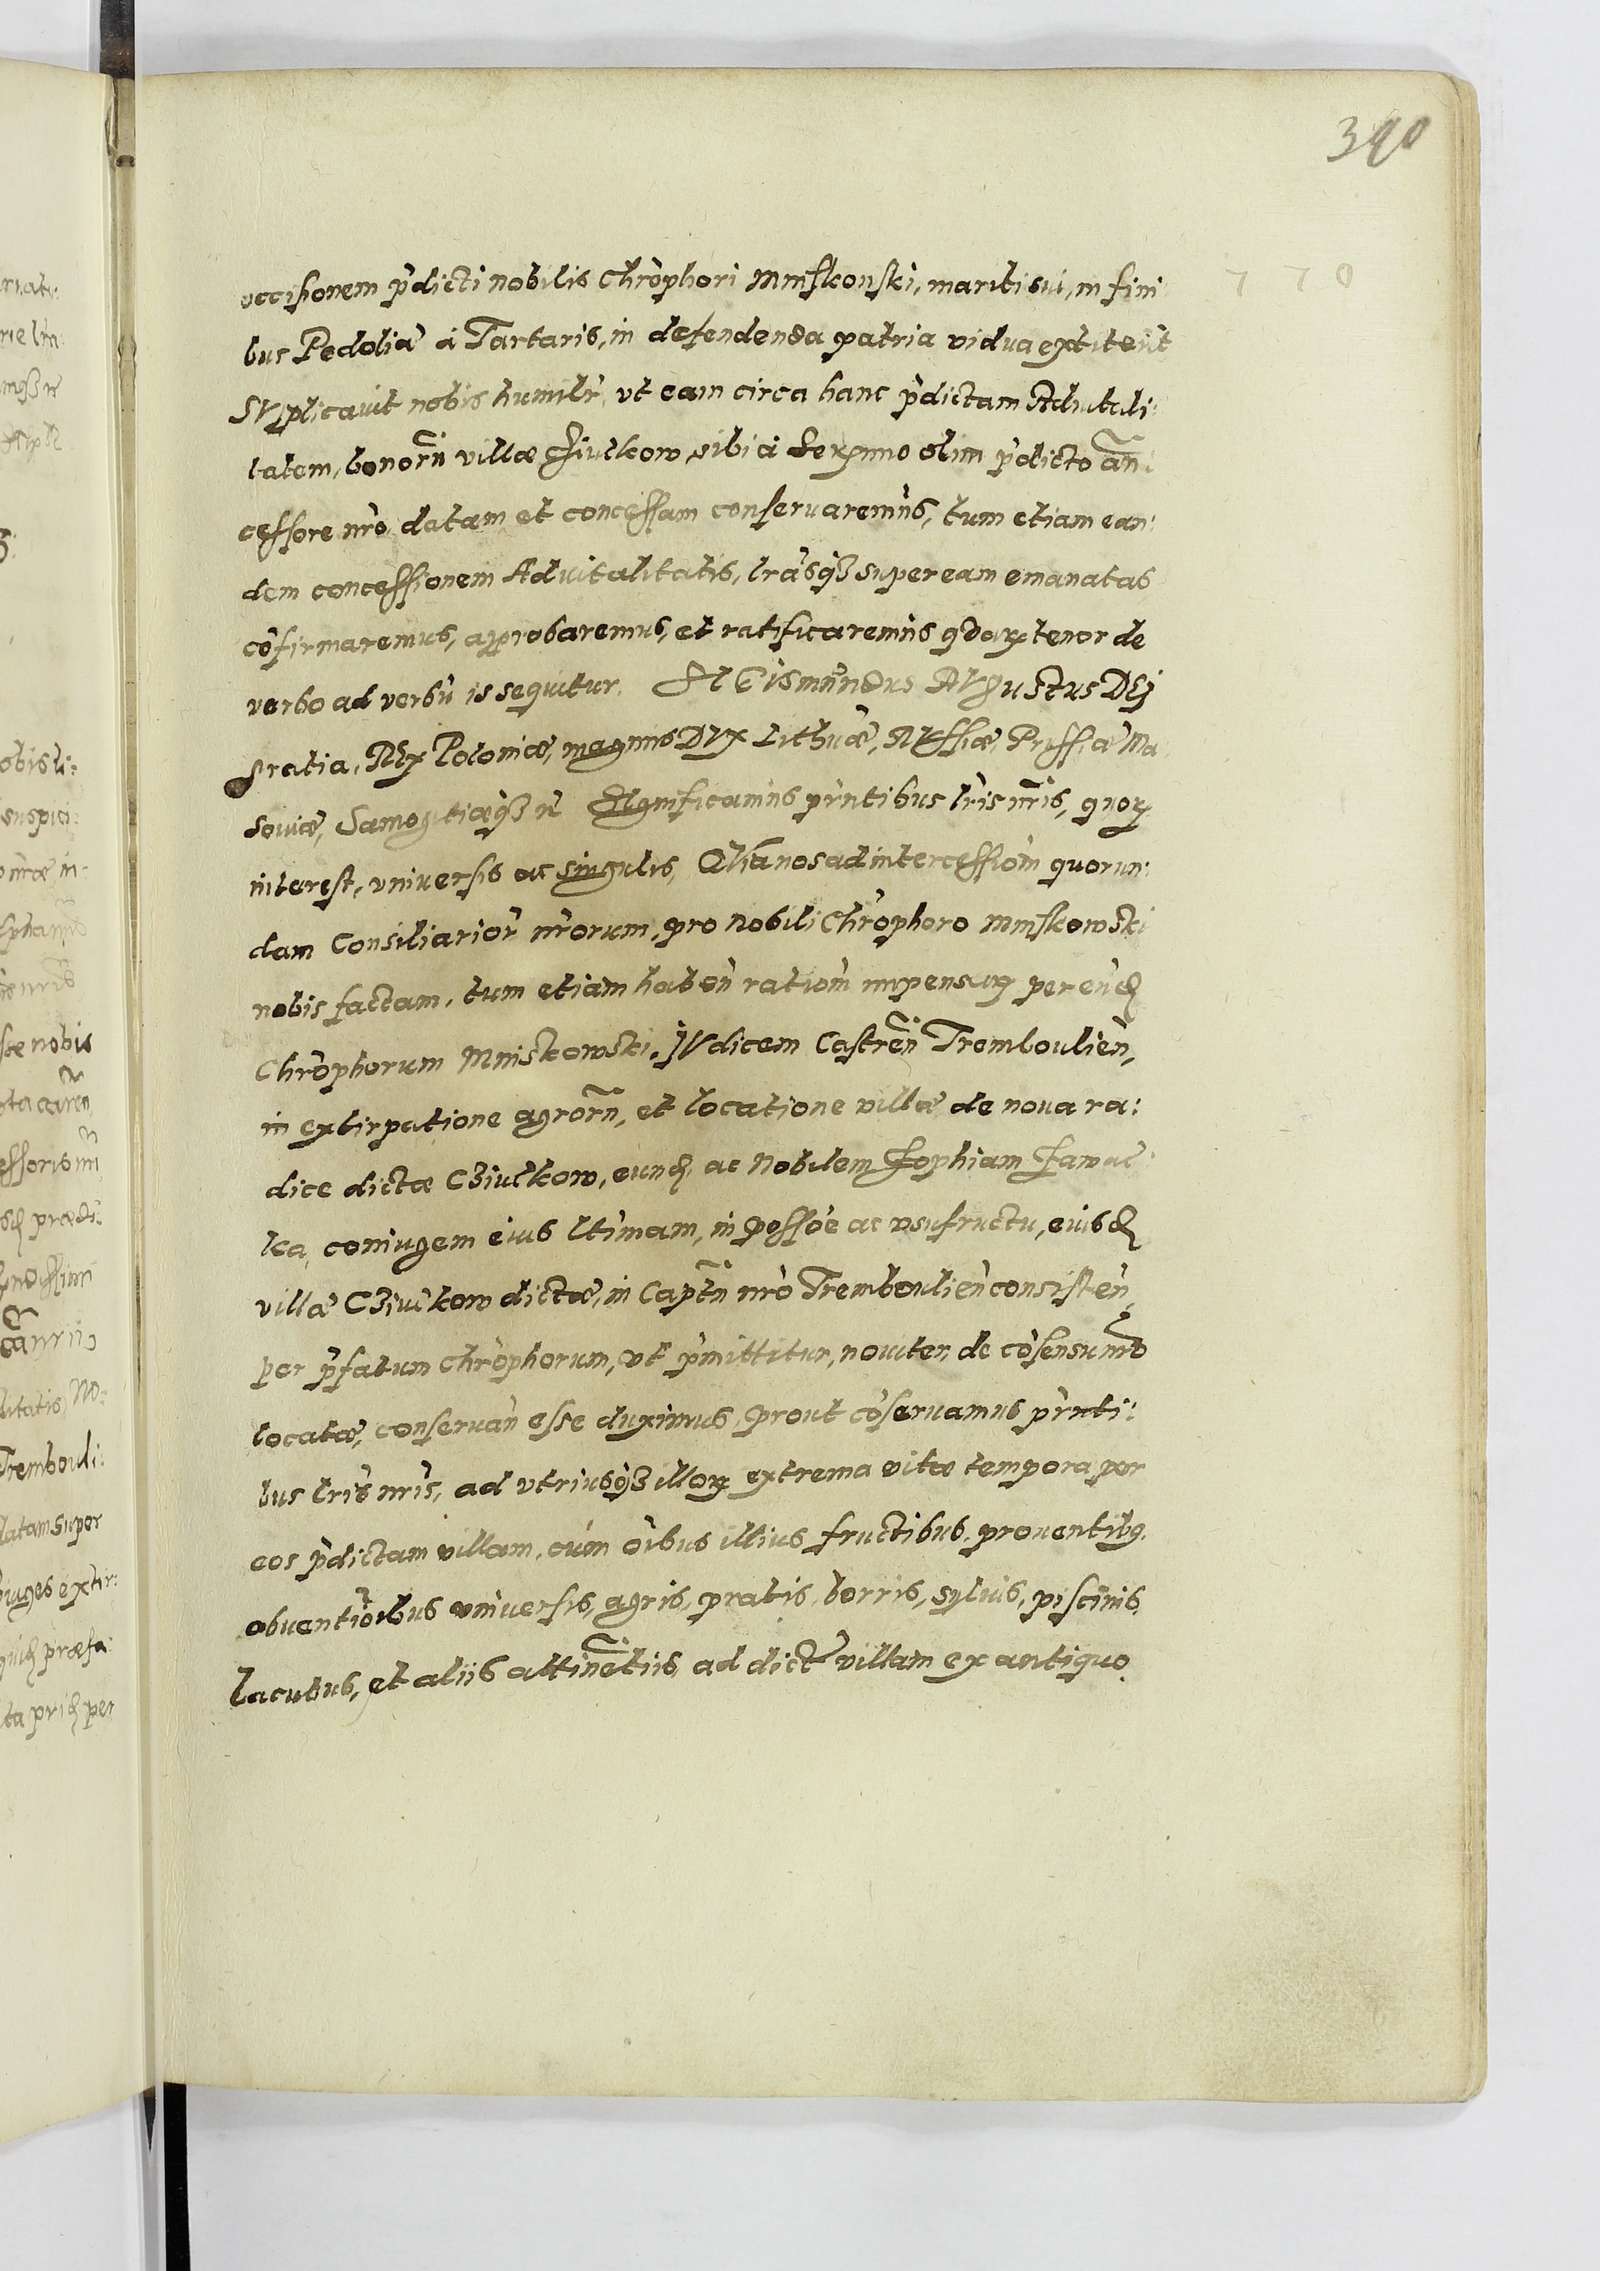 390
770
occisionem p̀dicti nobilis Chròphori Mniskonski, mariti sui, in fini
bus Podoliæ à Tartaris, in defendenda patria vidua extiterìt
Supplicavit nobis humilr̀, vt eam circa hanc p̀dictam Aduitali:
tatem, bonorñ villæ Cziuikow, sibi à Serxmo olim p̀dicto añ:
cessore nrò datam et concessam conseruaremùs, tum etiam ean:
dem concessionem Aduitalitatis, lràsqȝ super eam emanatas
còfirmaremus, approbaremus, et ratificaremùs qdoꝝ tenor de
verbo ad verbù is sequitur. SIGismùndus AVgustus DEj
gratia, REx Poloniæ, magnus DVx Lithuæ, RVssiæ, Prussiæ Ma
souiæ, Samogitiæqȝ rc̃ Significamùs pr̀ntibus lrìs nrìs, quoꝝ
interest, vniuersis ac singulis, Quia nos ad intercessiom̀ quorun:
dam Consiliarior̀ nròrum, pro Nobili Chròphoro Mniskowski
nobis factam, tum etiam habeǹ ratiom̀ impensaꝝ per eùnd
Chròphorum Mniskowski, jVdicem Castreñ Tremboulieǹ,
in extirpatione agrorñ, et locatione villæ de noua ra:
dice dictæ Cziuikow, eund, ac Nobilem Sophiam
ka, coniugem eius ltìmam, in possòe ac vsufructu, eiusd
villæ Cziuikow dictæ, in Captñ nrò Tremboulieǹ consisteǹ,
per p̀fatum Chròphorum, vt p̀mittitur, nouiter, de còsensu nrò
locatæ, conseruaǹ esse duximus, prout còseruamus pr̀nti:
bus lrìs nrìs, ad vtriusqȝ illoꝝ extrema vitæ tempora per
eos p̀dictam villam, cùm oìbus illius fructibus, prouentibꝯ,
obuentioìbus vniuersis, agris, pratis, borris, syluis, piscinis,
lacubus, et aliis attinẽtiis ad dict̀ villam ex antiquo